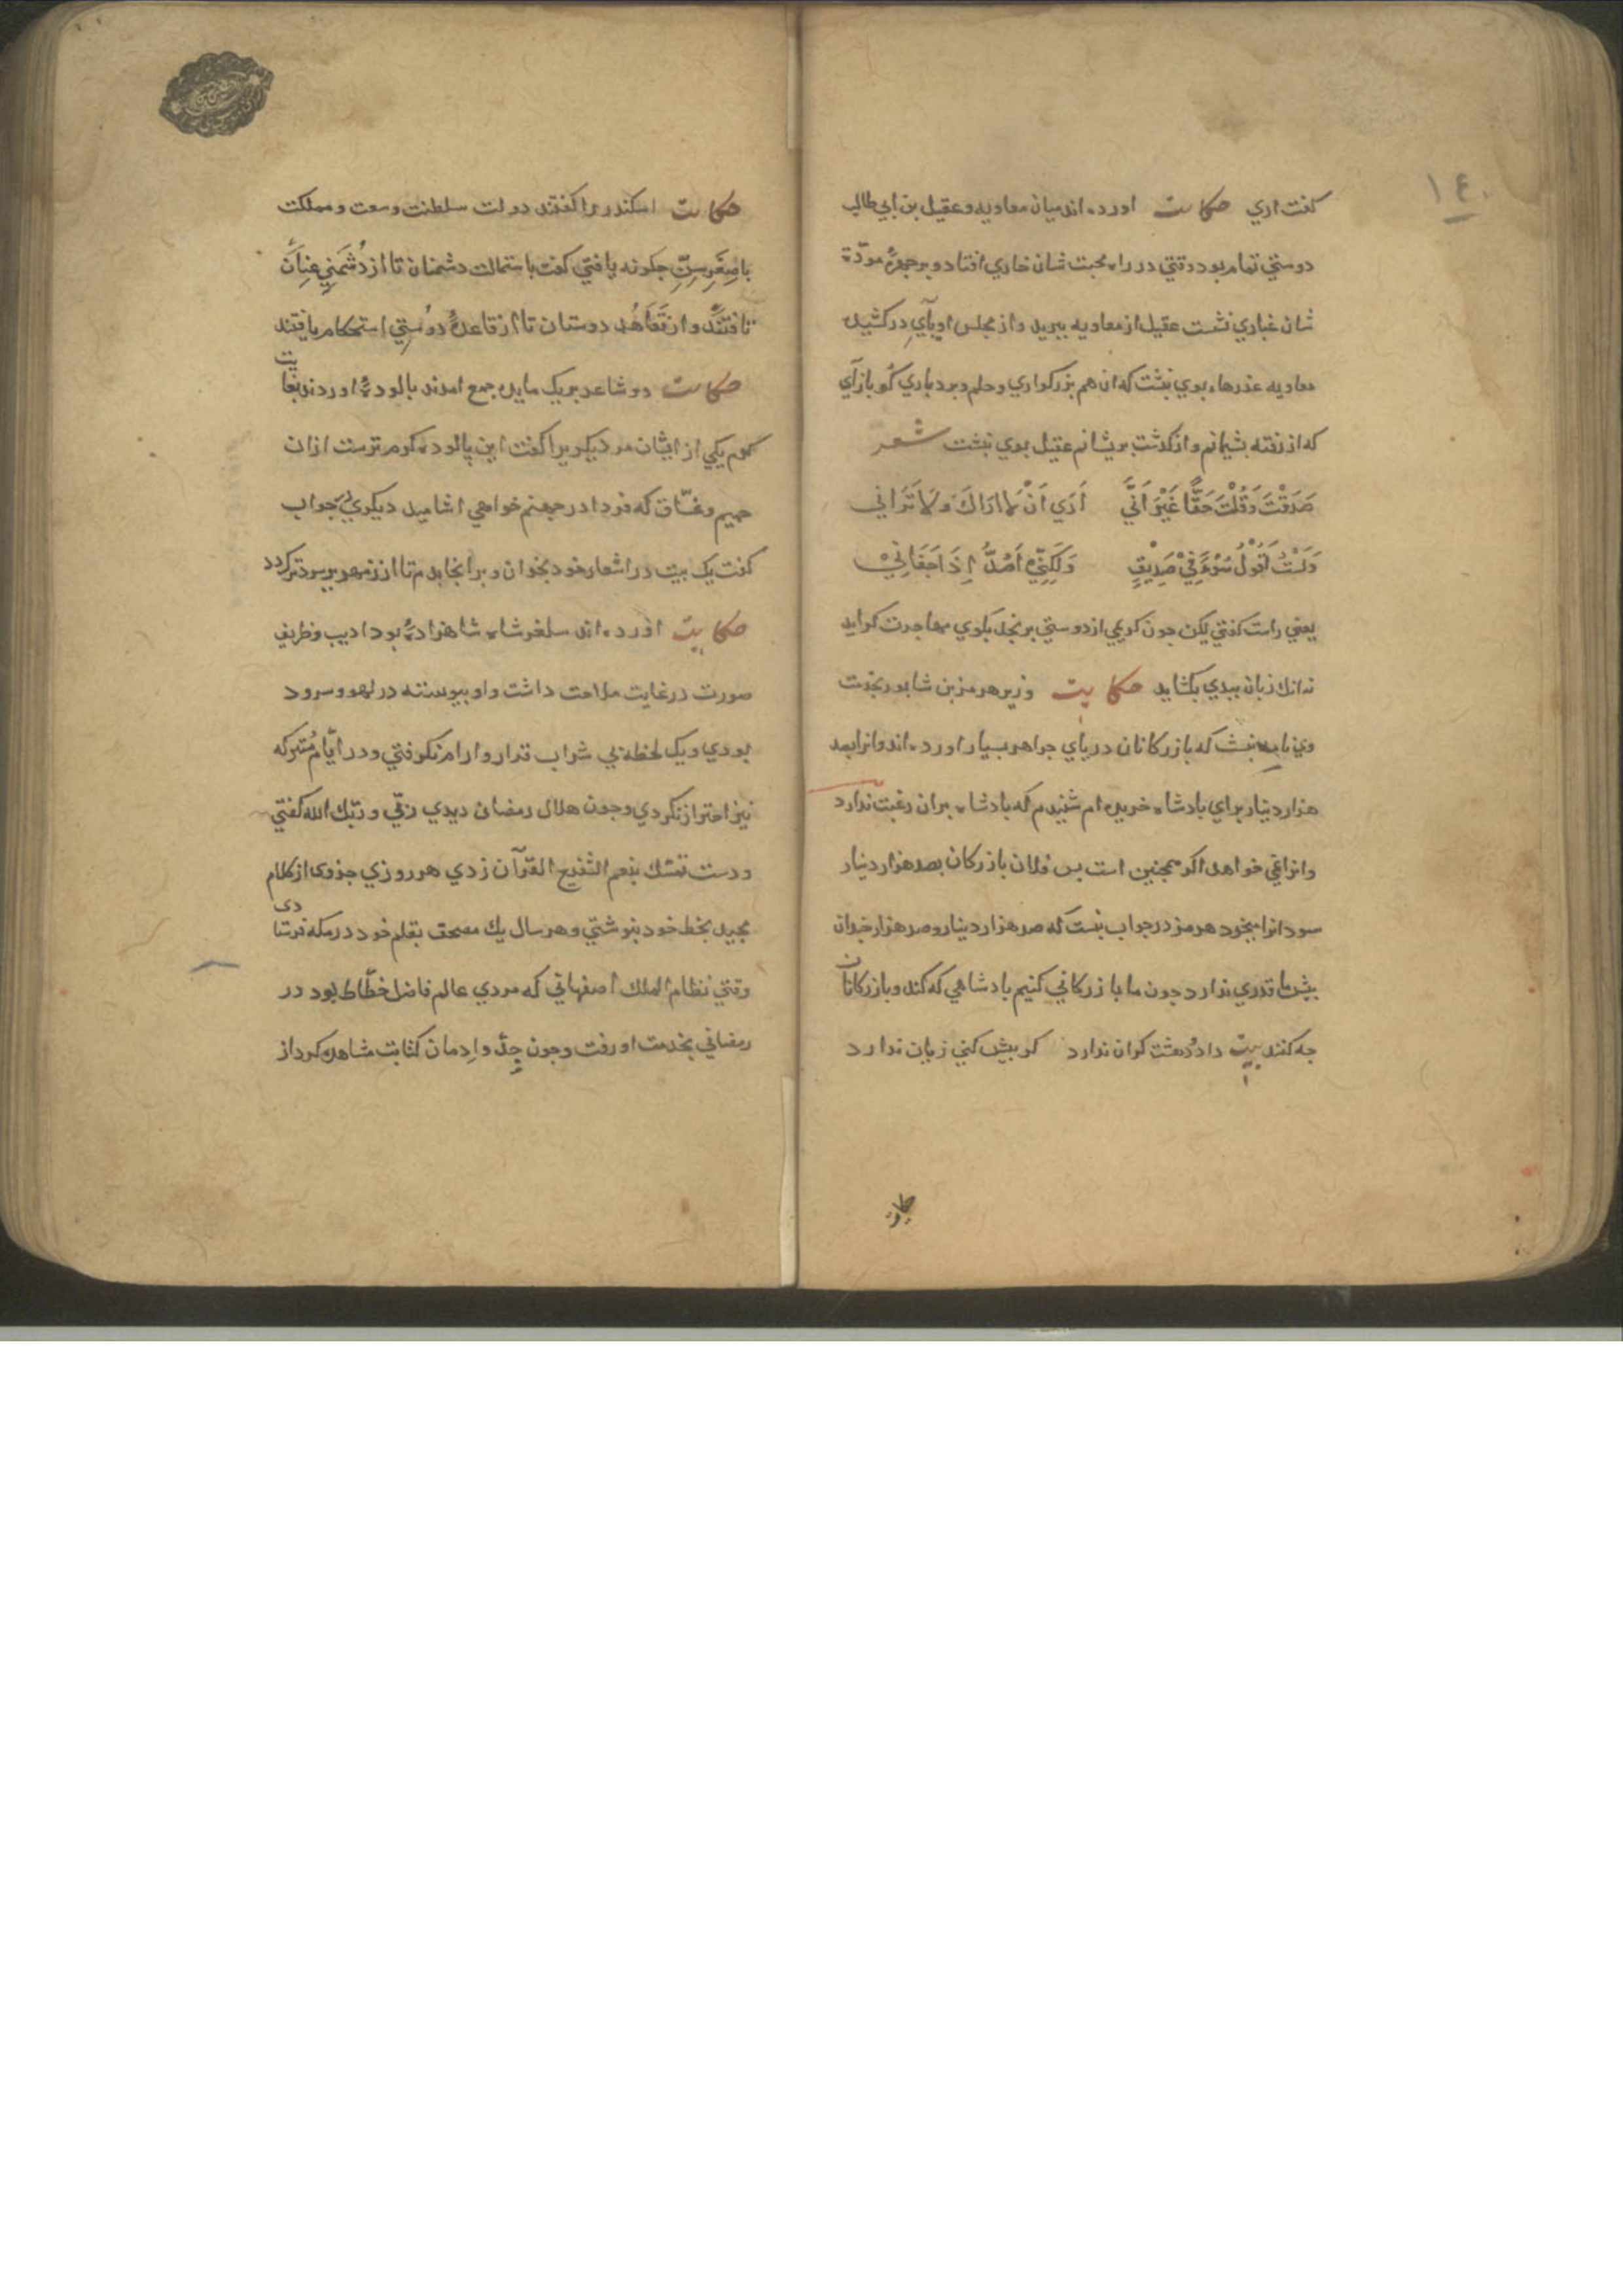 ١٤٠
كفت اري حكايت اورده اند ميان معاويه و عقيل بن ابي طالب
دوستي تمام بود وقتي در راه محبت شان خاري افتاد و بر جهرهٔ مودّة
شان غباري نشست عقيل از معاويه ببريد و از مجلس او پآي دركشيد
معاويه عذرها بوي نبشت كه ان هم بزركواري و حلم و بردباري كو بازآي
كه از رفته بشيمانم و از كذشت بريشانم عقيل بوي نبشت شعر
صَدَقْتَ وَقُلْتَ حَقًّا غَيْرَ اَنّي اَرَي اَنْ لَا اَرَاكَ وَلَا تَرَاني
وَلَسْتُ اَقُولُ سُوْءً فِيْ صَدِيْقٍ وَلَكِنّيْ اَصُدُّ اِذَا جَفَانِيْ
يعني راست كفتي ليكن جون كريمي از دوستي برنجد بكوي مهاجرت كرايد
نه انك زبان ببدي بكشايد حكايت وزير هرمز بن شابور بخدمت
وي نامه نبشت كه بازركانان درياي جواهر بسيار اورده اند و انرا بصد
هزار دينار براي بادشاه خريده ام شنيدم كه بادشاه بران رغبت ندارد
و انرا نمي خواهد اكر همجنين است بس فلان بازركان بصد هزار دينار
سود انرا ميخرد هرمز در جواب نبشت كه صد هزار دينار و صد هزار جندان
بيش ما قدري ندارد جون ما بازركاني كنيم بادشاهي كه كند و بازركانان
جه كنند بيت داد و دهشت كران ندارد كر بيش كني زيان ندارد
حكايت
حكايت اسكندر را كفتند دولت سلطنت و سعت و مملكت
با صِغَرِ سِنّ جكونه يافتي كفت باستمالت دشمنان تا از دُشمَني عِنَان
تافتَنْد و از تَعَاهُد دوستان تا از قاعدهٔ دوُستي استحكام يافتند
حكايت دو شاعر بر يك مايده جمع امدند بالودهٔ اوردند بغايت
كرم يكي از ايشان مر ديكريرا كفت اين پالوده كرم ترست ازان
حميم و غسّاق كه فردا در جهنم خواهي اشاميد ديكري جواب
كفت يك بيت در اشعار خود بخوان و برانجا بدم تا از زمهرير سردتر كردد
حكايت اورده اند سلغرشاه شاهزادهٔ بود اديب و ظريف
صورت در غايت ملاحت داشت و او بيوسته در لهو و سرود
بودي و يك لحظه بي شراب قرار و ارام نكرفتي و در ايّام مُتبركه
نيز احتراز نكردي و جون هلال رمضان ديدي ربّي و ربّك الله كفتي
و دست تمسّك بنعم الشفيع القرآن زدي هر روزي جزوی از كلام
مجيد بخط خود بنوشتي و هر سال يك مصحف بقلم خود در مكه فرستادی
وقتي نظام الملك اصفهاني كه مردي عالم فاضل خطّاط بود در
رمضاني بخدمت او رفت و جون جِدّ و اِدمان كتابت مشاهده كرد از